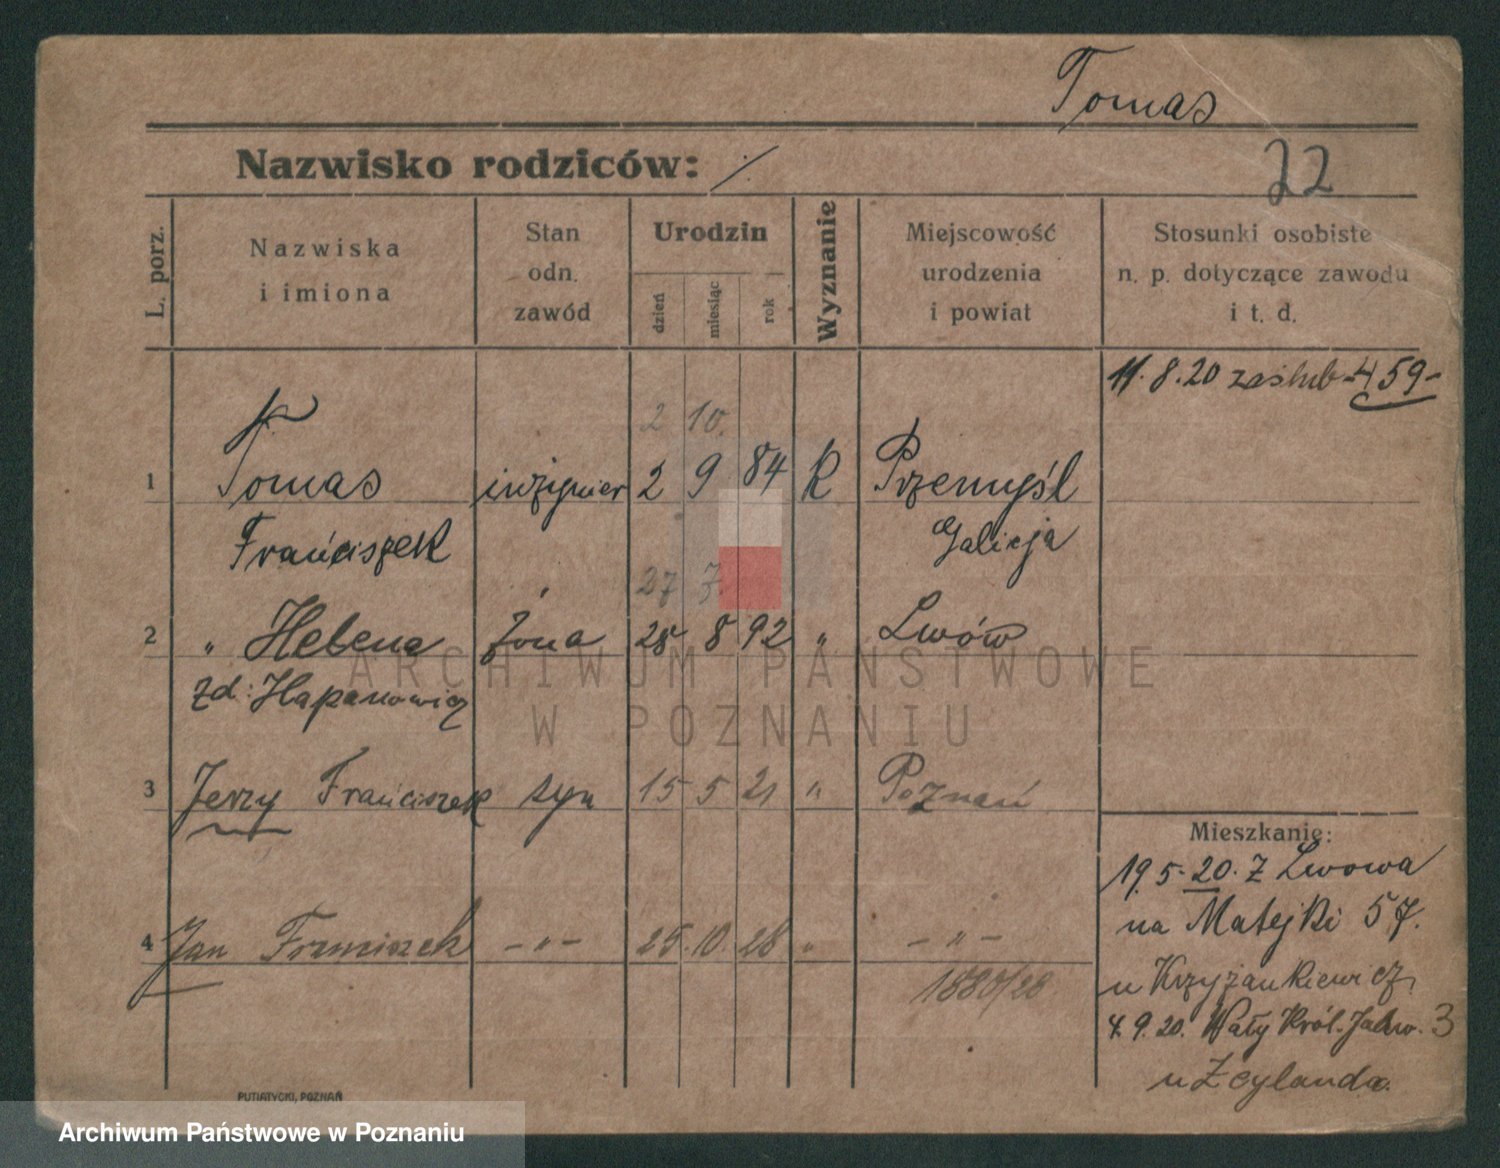 Tomas
Nazwisko rodziców: /
22
L. porz.
Nazwiska i imiona
Stan odn. zawód
Urodzin
dzień
miesiąc
rok
Wyznanie
Miejscowość urodzenia i powiat
Stosunki osobiste n. p. dotyczące zawodu i t. d.
11.8.20 zaślub - 459 -
2 10.
1 Tomas inżynier 2 9 84 K Przemyśl
Franciszek Galicja
27 7.
2 " Helena żona 28 8 92 " Lwów
zd: Hapanowicz
3 Jerzy Franciszek syn 15 5 21 " Poznań
4 Jan Franciszek - " - 25. 10. 28 " - " -
1880/28
Mieszkanie:
19.5.20. z Lwowa
na Matejki 57.
u Krzyżankiewicz
4.9.20. Wały Król. Jadw. 3
u Zeylanda.
PUTIATYCKI, POZNAŃ
ARCHIWUM PAŃSTWOWE
W POZNANIU
Archiwum Państwowe w Poznaniu